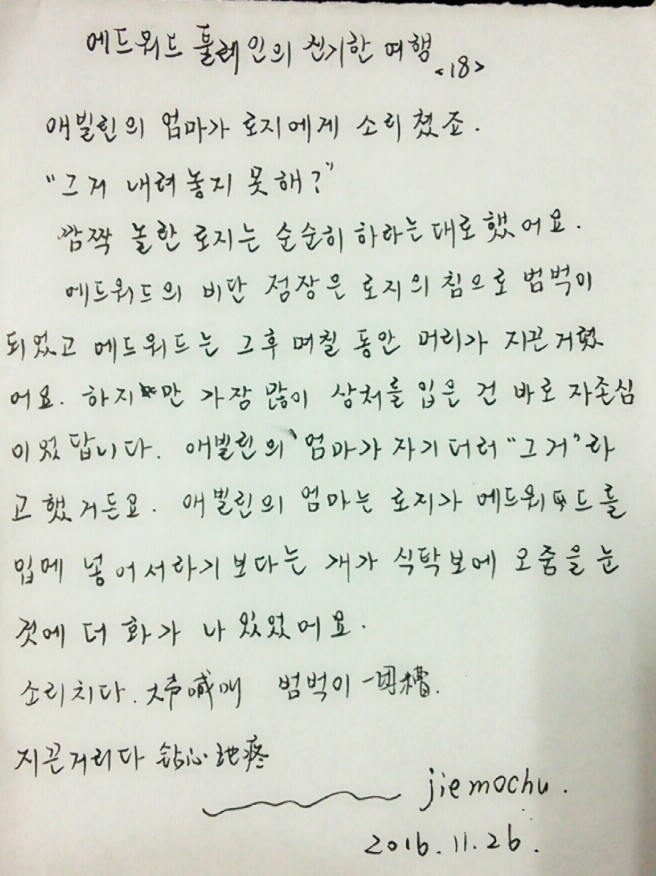 에드워드 툴레인의 신기한 여행
<18>
애빌린의 엄마가 로지에게 소리쳤죠.
"그거 내려놓지 못해?"
깜짝 놀란 로지는 순순히 하라는대로했어요.
에드워드의 비단 정장은 로지의 침으로 범벅이
되었고 에드워드는 그후 며칠 동안 머리가 지끈거렸
어요. 하지만 가장 많이 상처를 입은 건 바로 자존심
이었답니다. 애빌린의 엄마가 자기더러 "그거"라
고 했거든요. 애빌린의 엄마는 로지가 에드워드를
입에 넣어서라기보다는 개가 식탁보에 오줌을 눈
것에 더 화가 나 있었어요.
소리치다. 大声喊叫 범벅이 一团糟.
지끈거리다 钻心地疼
jiemochu.
2016.11.26.